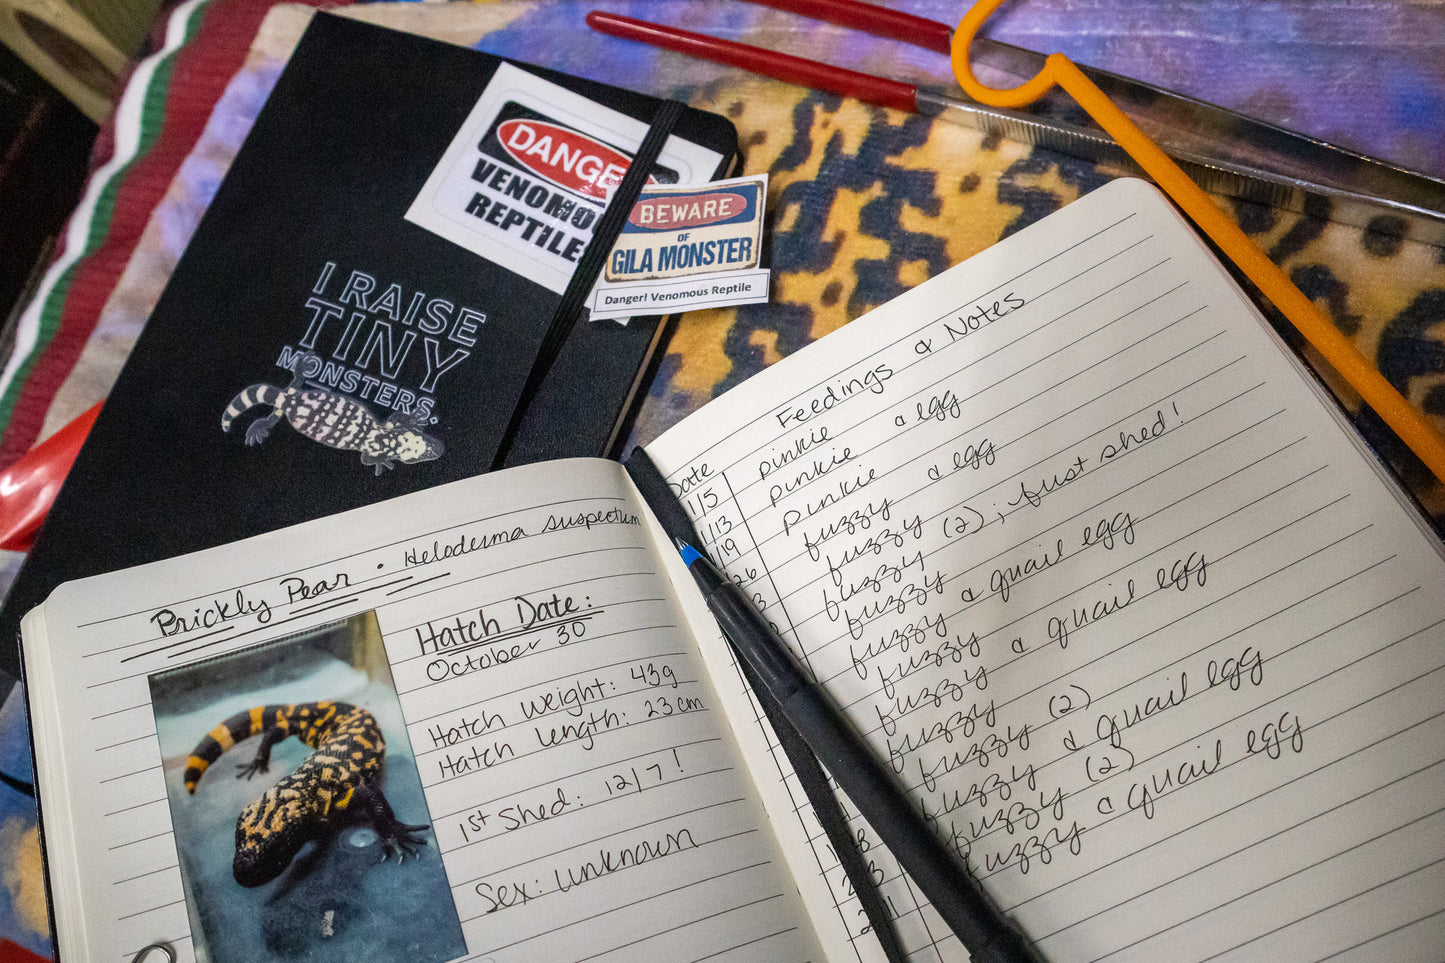 DANGER
VENOMOUS
REPTILE
BEWARE
OF
GILA MONSTER
Danger! Venomous Reptile
I RAISE
TINY
MONSTERS.
Prickly Pear • Heloderma suspectum
Hatch Date:
October 30
Hatch weight: 43g
Hatch length: 23cm
1st Shed: 12/7!
Sex: unknown
Feedings & Notes
Date
1/5 pinkie
1/13 pinkie & egg
1/19 pinkie
26 fuzzy & egg
3 fuzzy (2); just shed!
fuzzy
fuzzy
fuzzy & quail egg
fuzzy
fuzzy & quail egg
fuzzy
fuzzy (2)
fuzzy & quail egg
fuzzy (2)
fuzzy & quail egg